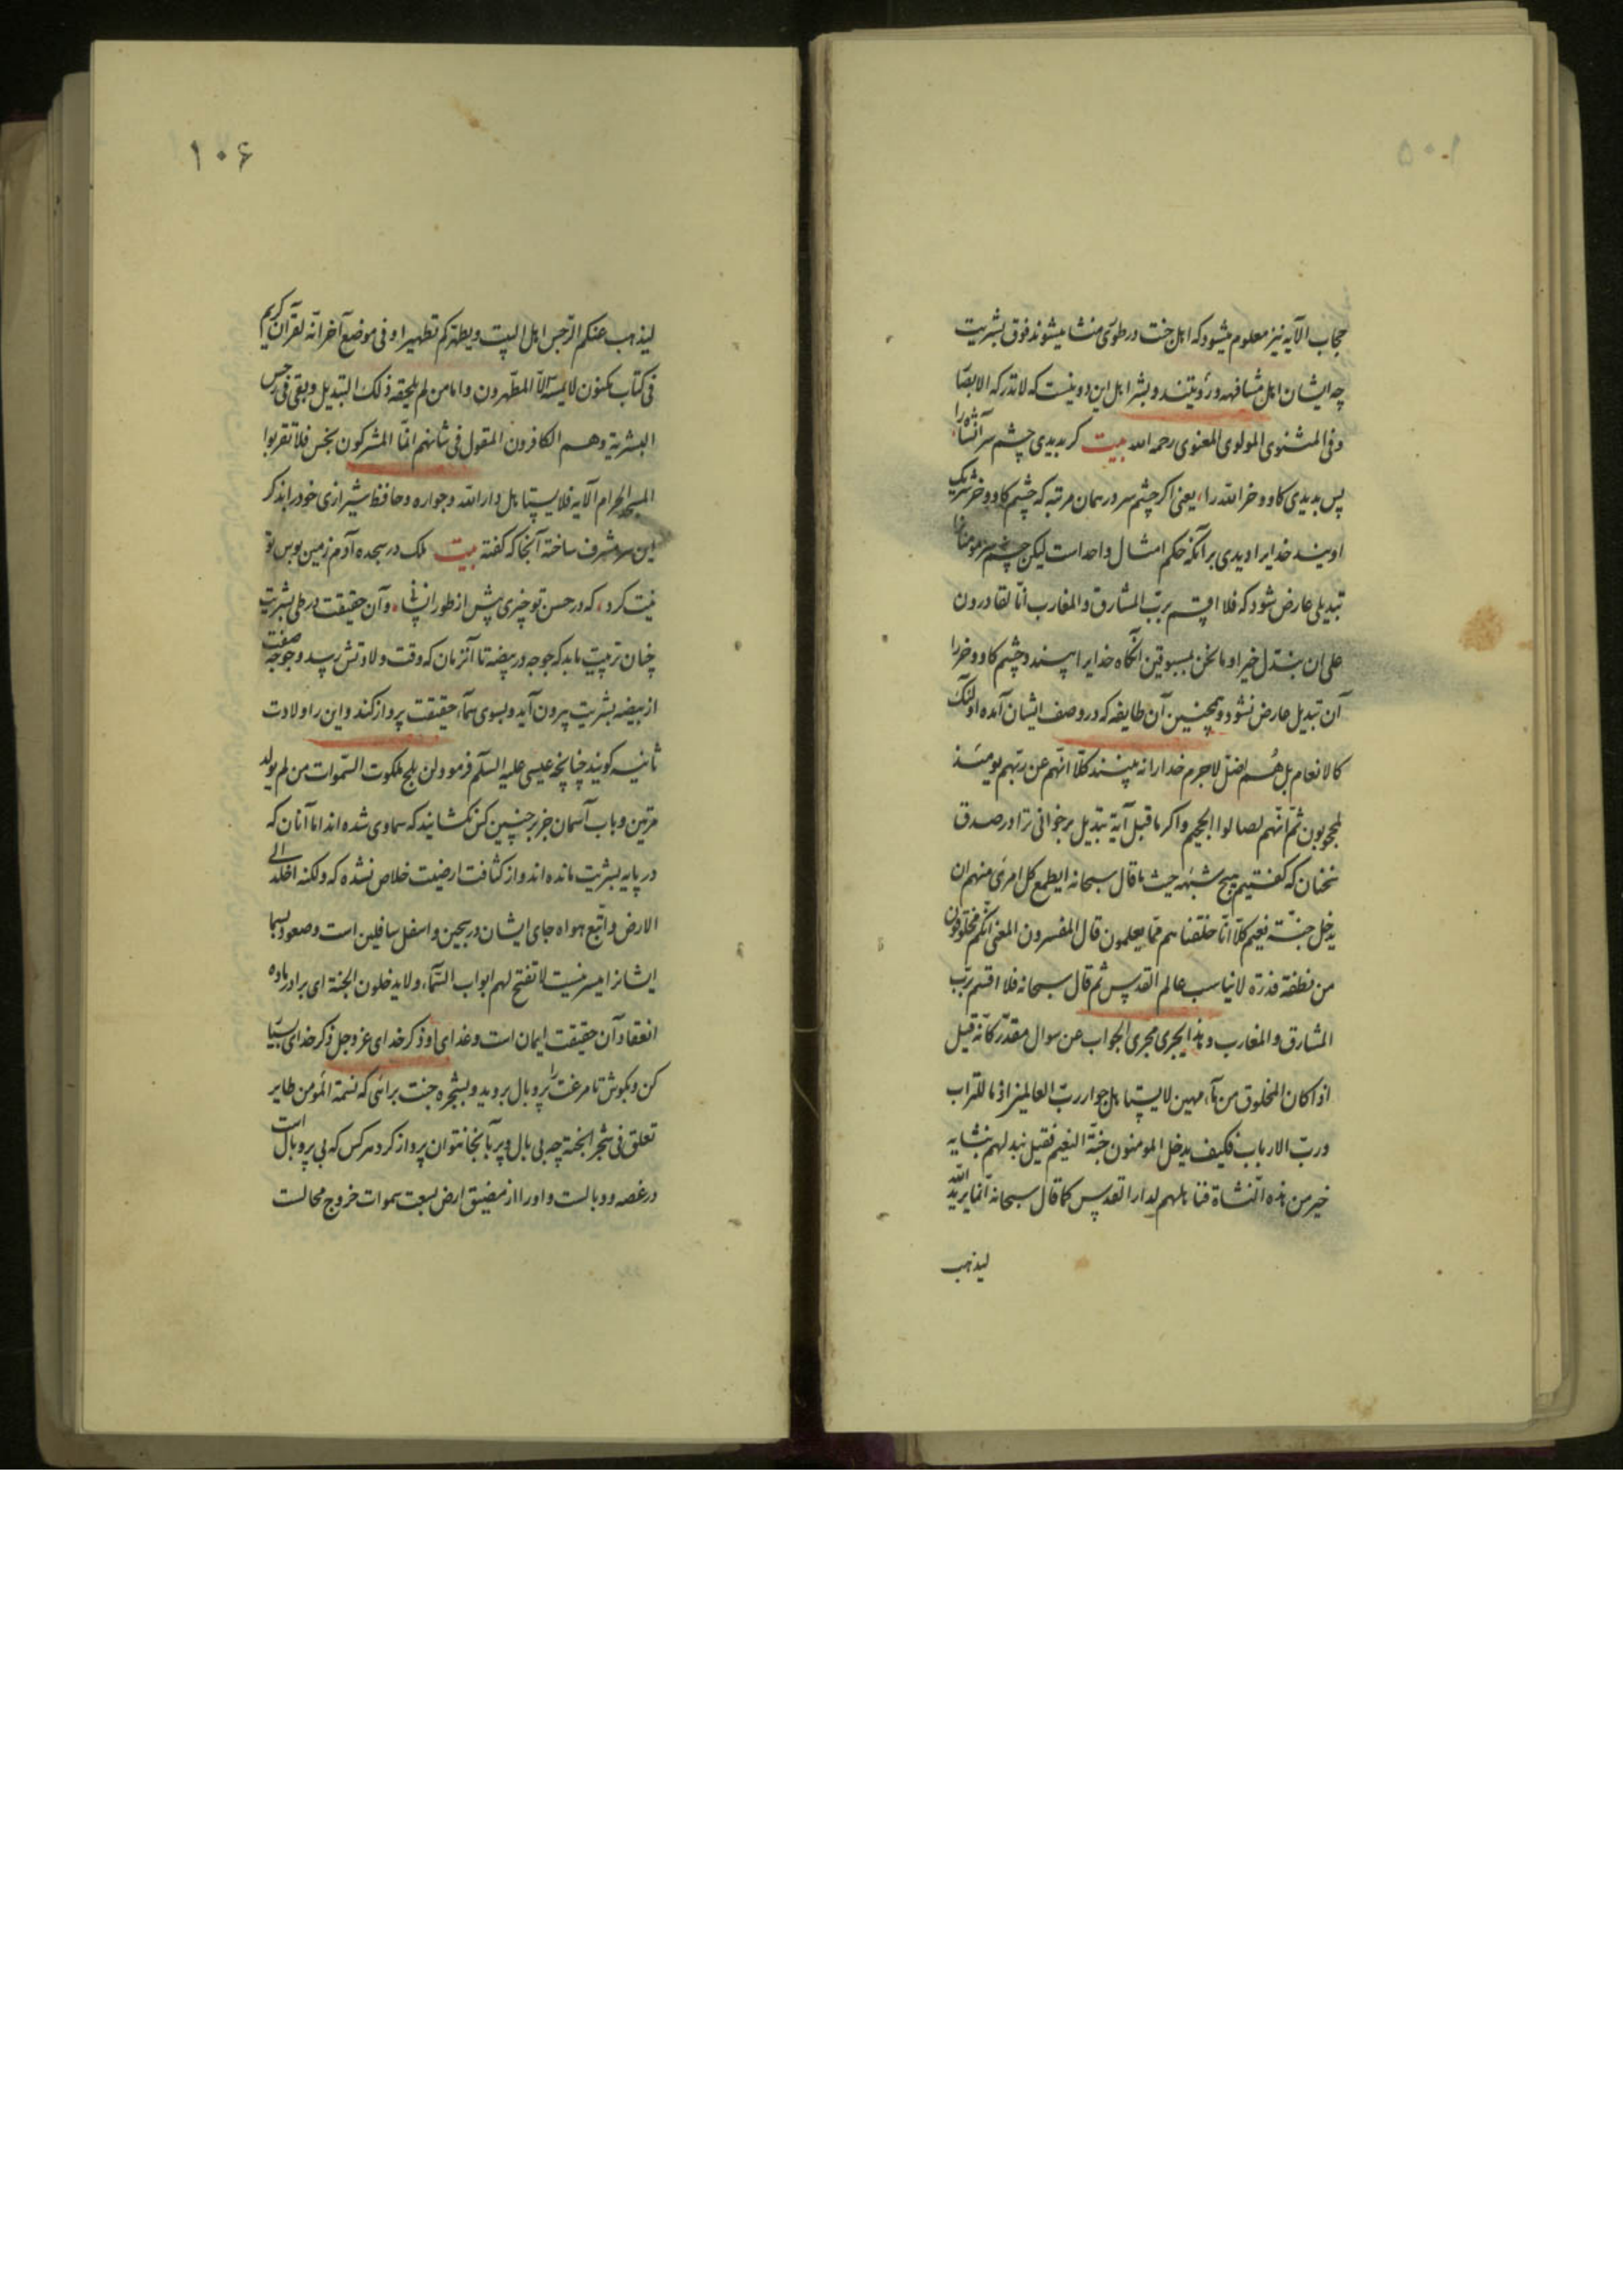 حجاب الآیه نیز معلوم میشود که اهل جنت در طوری منشا میشوند فوق بشریت
چه ایشان اهل مشافهه و رؤیتند و بشر اهل این دو نیست که لا تدرکه الابصار
و فی المثنوی المولوی المعنوی رحمه الله بیت کر بدیدی چشم سر آنشاه را
پس بدیدی کاو و خر الله را یعنی اکر چشم سر در همان مرتبه که چشم کاو و خر شریک
اویند خدایرا دیدی بر آنکه حکم امثال واحد است لیکن چشم سر مومنانرا
تبدیلی عارض شود که فلا اقسم برب المشارق و المغارب انا لقادرون
علی ان نبدل خیرا و ما نحن بمسبوقین آنکاه خدایرا بینند و چشم کاو و خر را
آن تبدیل عارض نشود و همچنین آن طایفه که در وصف ایشان آمده اولئک
کالانعام بل هم اضل لاجرم خدا را نه بینند کلا انهم عن ربهم یومئذ
لمحجوبون ثم انهم لصالوا الجحیم و اکر ما قبل آیة تبدیل برخوانی ترا در صدق
سخنان که کفتیم هیچ شبهه حیث ما قال سبحانه ایطمع کل امرئ منهم ان
یدخل جنة نعیم کلا انا خلقناهم مما یعلمون قال المفسرون المعنی انکم مخلوقون
من نطفة قذرة لا یناسب عالم القدس ثم قال سبحانه فلا اقسم برب
المشارق و المغارب و هذا یجری مجری الجواب عن سوال مقدر کانه قیل
اذا کان المخلوق من ماء مهین لا یستاهل جوار رب العالمین اذ ما للتراب
و رب الارباب فکیف یدخل المومنون جنة النعیم فقیل نبدلهم بنشایه
خیر من هذه النشاة فناهلهم لدار القدس کما قال سبحانه انما یرید الله
لیذهب
۱۰۶
لیذهب عنکم الرجس اهل البیت و یطهرکم تطهیرا و فی موضع آخر انه لقرآن کریم
فی کتاب مکنون لا یمسه الا المطهرون و اما من لم یلحقه ذلک التبدیل و بقی فی رجس
البشریة و هم الکافرون المقول فی شانهم انما المشرکون نجس فلا تقربوا
المسجد الحرام الآیه فلا یستاهل دار الله و جواره و حافظ شیرازی خود را بذکر
این سر مشرف ساخته آنجا که کفته بیت ملک در سجده آدم زمین بوس تو
نیت کرد که در حسن تو چیزی پیش از طور انسانی و آن حقیقت در طی بشریت
چنان تربیت یابد که جوجه در بیضه تا آنزمان که وقت ولادتش رسد و جوجه صفت
از بیضه بشریت بیرون آید و بسوی سماء حقیقت پرواز کند و این را ولادت
ثانیه کویند چنانچه عیسی علیه السلم فرمود لن یلج ملکوت السموات من لم یولد
مرتین و باب آسمان جز بر چنین کس نکشایند که سماوی شده اند اما آنان که
در پایه بشریت مانده اند و از کثافت ارضیت خلاص نشده که ولکنه اخلد الی
الارض و اتبع هواه جای ایشان در سجین و اسفل سافلین است و صعود بسما
ایشانرا میسر نیست لا تفتح لهم ابواب السماء و لا یدخلون الجنة ای برادر ماده
انعقاد آن حقیقت ایمان است و غذای او ذکر خدای عز و جل ذکر خدای بسیار
کن و بکوش تا مرغت را پر و بال بروید و بشجره جنت برائی که نسمة المومن طایر
تعلق فی شجر الجنة چه بی بال و پر بآنجا نتوان پرواز کرد هر کس که بی پر و بال است
در غصه و وبالست و او را از مضیق ارض بسعت سموات خروج محالست